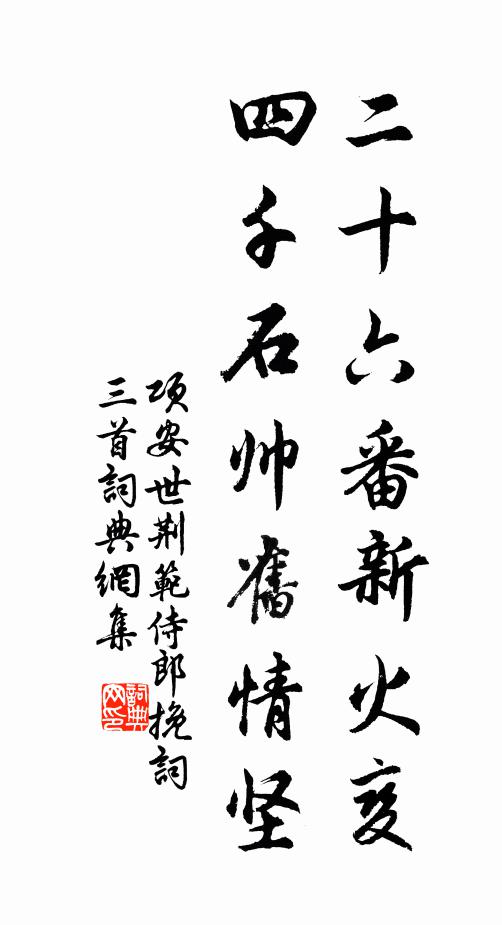 二十六番新火变
四千石帅舊情坚
項安世荆範侍郎挽詞
三首詞典網集
詞典网印